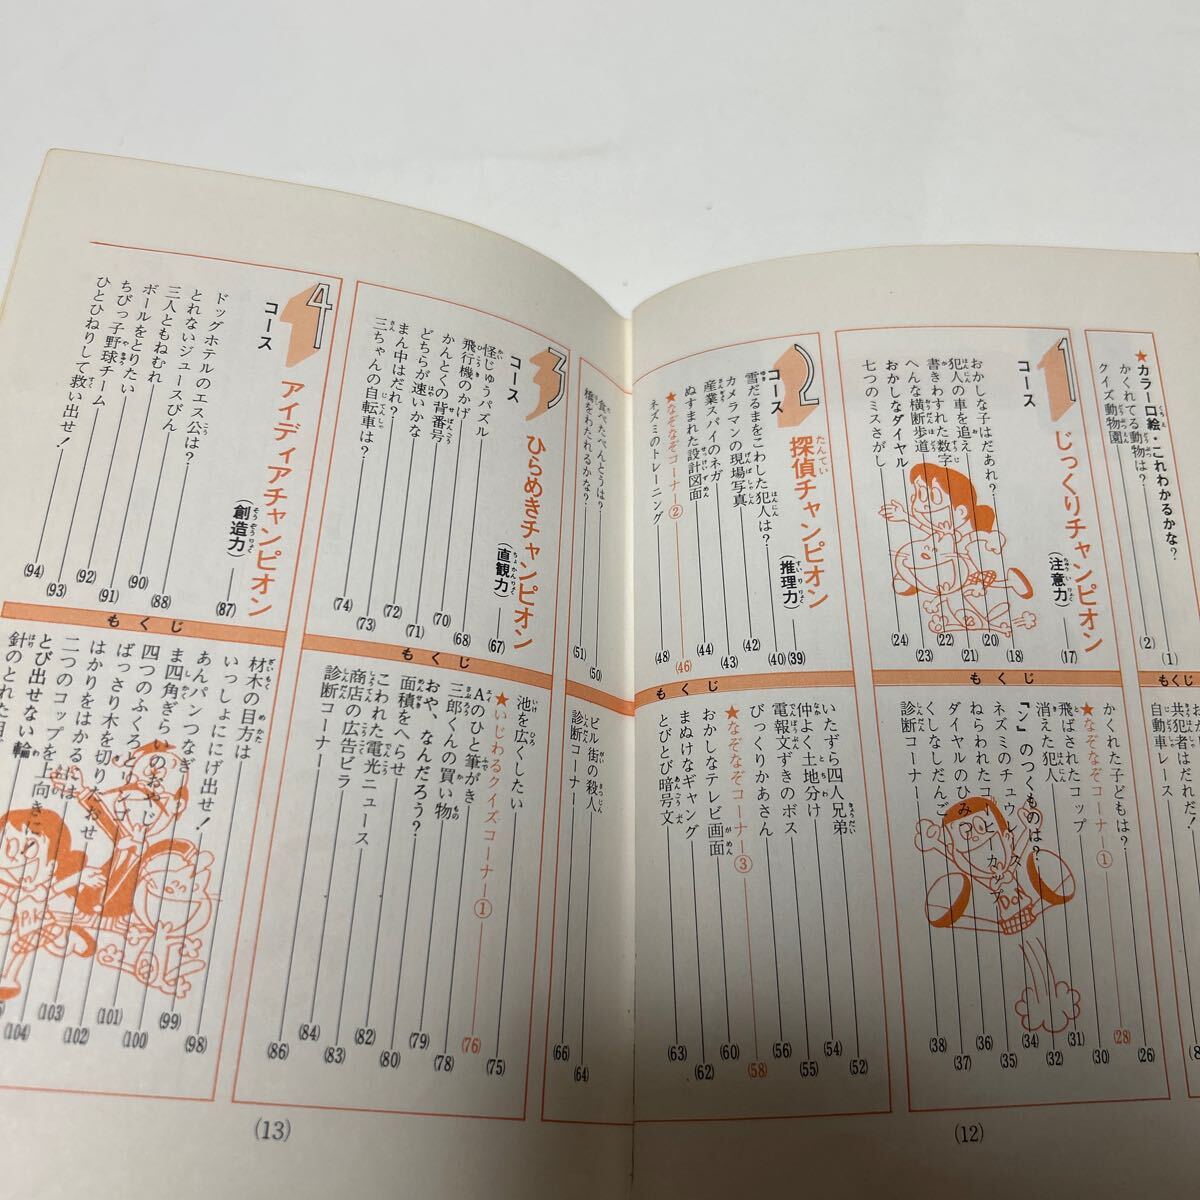 ★カラー口絵・これわかるかな？
かくれてる動物は？ (1)
クイズ動物園 (2)
1コース
じっくりチャンピオン
(注意力) (17)
おかしな子はだあれ？ (18)
犯人の車を追え (20)
書きわすれた数字 (21)
へんな横断歩道 (22)
おかしなダイヤル (23)
七つのミスさがし (24)
もくじ
自動車レース
かくれた子どもは？ (26)
★なぞなぞコーナー① (28)
飛ばされたコップ (30)
消えた犯人 (31)
「ン」のつくものは？ (32)
ネズミのチュウレース (34)
ねらわれたコーヒーカップ (35)
ダイヤルのひみつ (36)
くしなしだんご (37)
診断コーナー (38)
2コース
探偵チャンピオン
(推理力) (39)
雪だるまをこわした犯人は？ (40)
カメラマンの現場写真 (42)
産業スパイのネガ (43)
ぬすまれた設計図面 (44)
★なぞなぞコーナー② (46)
ネズミのトレーニング (48)
もくじ
いたずら四人兄弟 (52)
仲よく土地分け (54)
電報文ずきのボス (55)
びっくりかあさん (56)
★なぞなぞコーナー③ (58)
おかしなテレビ画面 (60)
まぬけなギャング (62)
とびとび暗号文 (63)
(12)
食べたべんとうは？ (50)
橋をわたれるかな？ (51)
ビル街の殺人 (64)
診断コーナー (66)
3コース
ひらめきチャンピオン
(直観力) (67)
怪じゅうパズル (68)
飛行機のかげ (70)
かんとくの背番号 (71)
どちらが速いかな (72)
まん中はだれ？ (73)
三ちゃんの自転車は？ (74)
もくじ
池を広くしたい (75)
★いじわるクイズコーナー① (76)
Aのひと筆がき (78)
三郎くんの買い物 (79)
おや、なんだろう？ (80)
面積をへらせ (82)
こわれた電光ニュース (83)
商店の広告ビラ (84)
診断コーナー (86)
4コース
アイディアチャンピオン
(創造力) (87)
ドッグホテルのエス公は？ (88)
とれないジュースびん (90)
三人ともねむれ (91)
ボールをとりたい (92)
ちびっ子野球チーム (93)
ひとひねりして救い出せ！ (94)
もくじ
材木の目方は
いっしょににげ出せ！ (98)
あんパンつなぎ (99)
ま四角ぎらいのおやじ (100)
四つのふくろとリンゴ (101)
ばっさり木を切りたおせ (102)
はかりをはかるには (103)
二つのコップを上向きに！ (104)
とび出せない輪
針のとれた
(13)